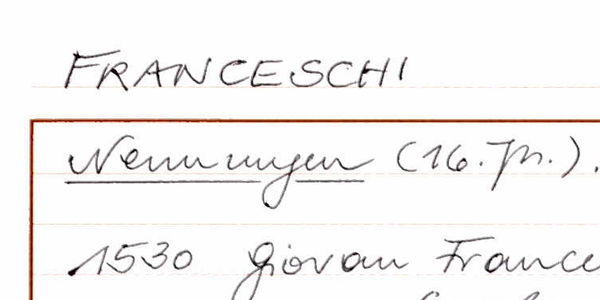 FRANCESCHI
Nennungen (16. Jh.).
1530 Giovan France